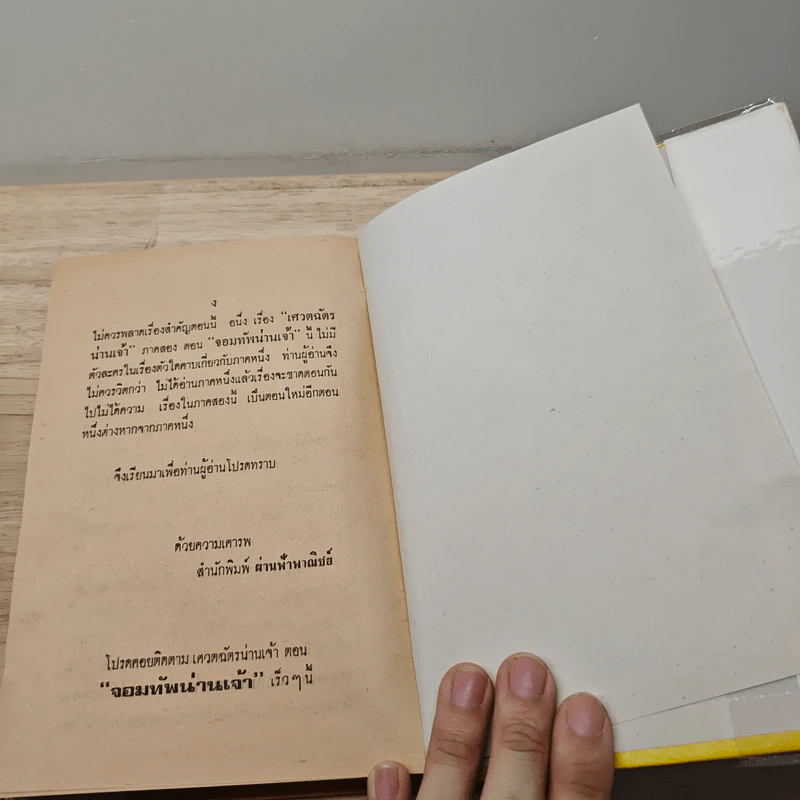 ง
ไม่ควรพลาดเรื่องสำคัญตอนนี้ อนึ่ง เรื่อง “เศวตฉัตร
น่านเจ้า” ภาคสอง ตอน “จอมทัพน่านเจ้า” นี้ ไม่มี
ตัวละครในเรื่องตัวใดคาบเกี่ยวกับภาคหนึ่ง ท่านผู้อ่านจึง
ไม่ควรวิตกว่า ไม่ได้อ่านภาคหนึ่งแล้วเรื่องจะขาดตอนกัน
ไปไม่ได้ความ เรื่องในภาคสองนี้ เป็นตอนใหม่อีกตอน
หนึ่งต่างหากจากภาคหนึ่ง
จึงเรียนมาเพื่อท่านผู้อ่านโปรดทราบ
ด้วยความเคารพ
สำนักพิมพ์ ผ่านฟ้าพาณิชย์
โปรดคอยติดตาม เศวตฉัตรน่านเจ้า ตอน
“จอมทัพน่านเจ้า” เร็วๆ นี้